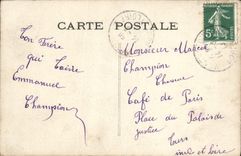 CARTE POSTALE
Ton Frère
qui t'aime
Emmanuel
Champion
Monsieur Marcel
Champion
Café de Paris
Place du Palais de
Justice
Tours
Indre et Loire